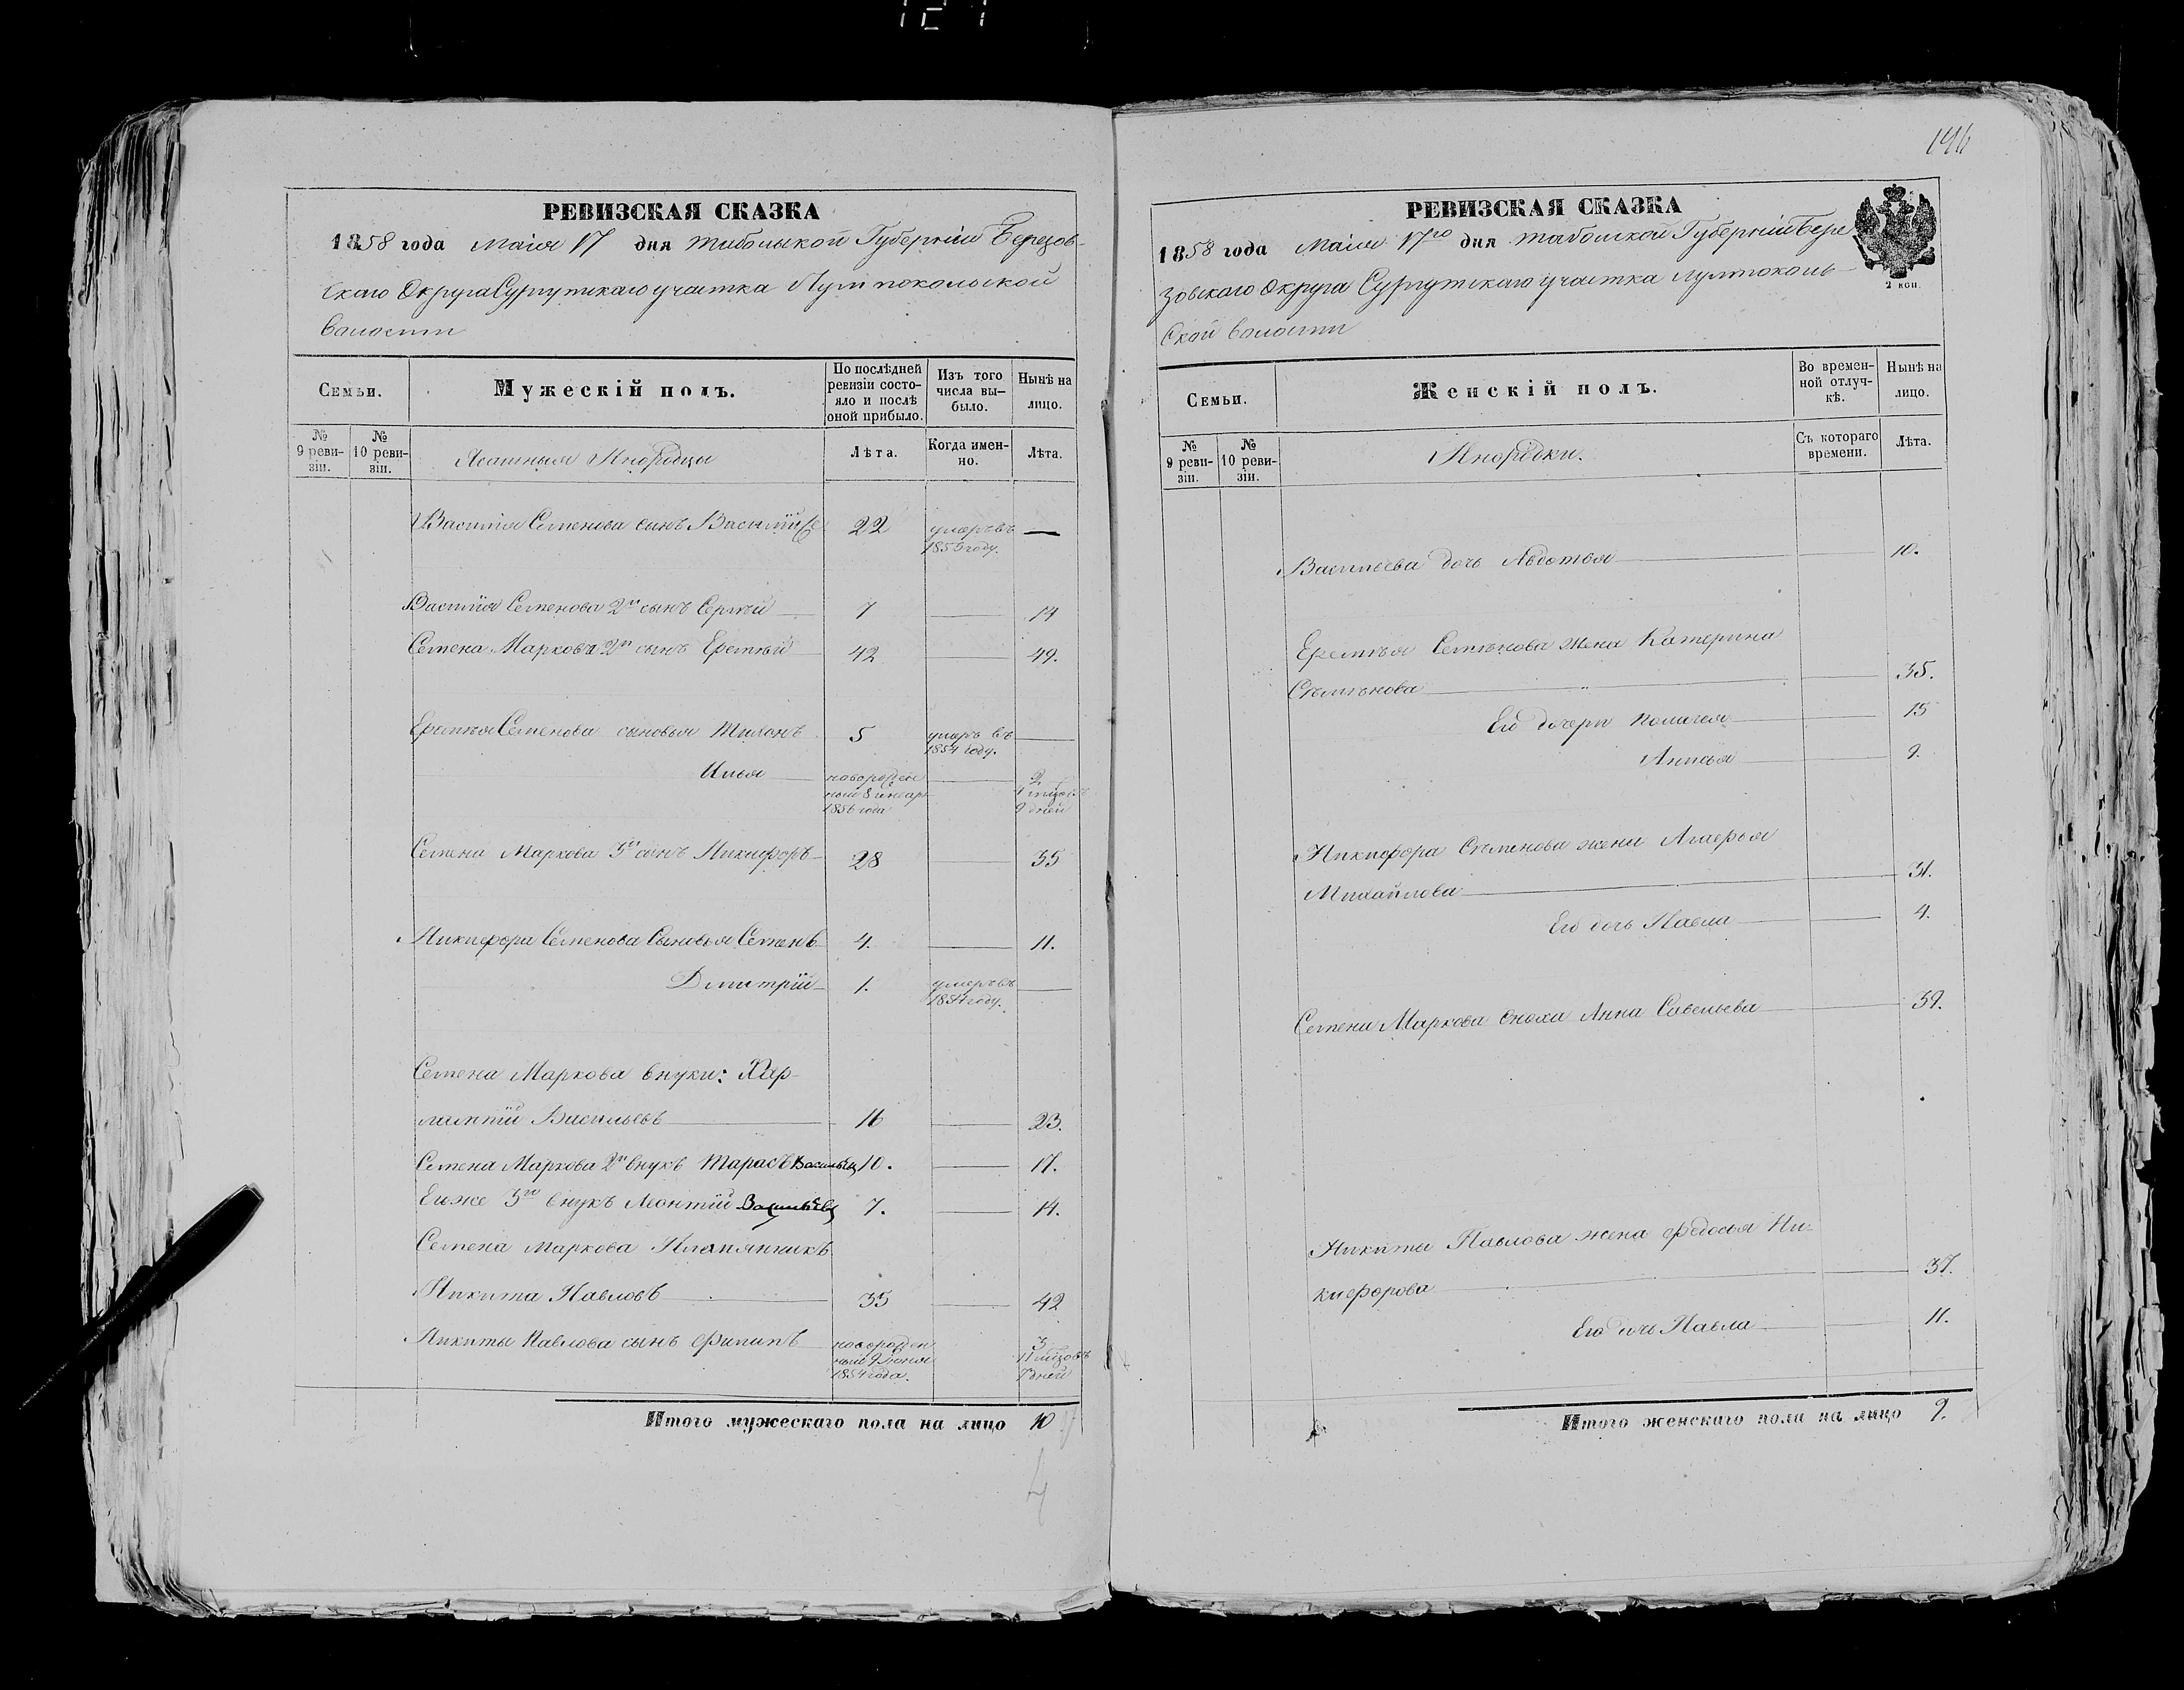 РЕВИЗСКАЯ СКАЗКА
1858 года Маія 17 дня Тобольской Губерніи Березов-
скаго Округа Сургутскаго участка Лумпокольской
волости
Семьи.
Мужескій полъ.
По послѣдней ревизіи состояло и послѣ оной прибыло.
Изъ того числа вы-было.
Нынѣ на лицо.
№ 9 реви-зіи.
№ 10 реви-зіи.
Ясашныя Инородцы
Лѣта.
Когда имен-но.
Лѣта.
Василія Семенова сынъ Василій 22 умеръ въ —
185 году.
Василія Семенова 2й сынъ Сергѣй 7 14
Семена Маркова 2й сынъ Еремѣй 42 49.
Еремѣя Семенова сыновья 5 умеръ въ
1854 году.
Илья новорожден 2
ный 8 Январ 4 мѣцовъ
1856 года 9 дней
Семена Маркова 3й сынъ Никифоръ 28 35
Никифора Семенова Сыновья Семенъ 4. 11.
Дмитрій 1. умеръ въ
1854 году.
Семена Маркова внуки: Хар-
лампій Васильевъ 16 23.
Семена Маркова 2й внукъ Тарасъ Васильевъ 10. 17.
Егоже 3й внукъ Леонтій Васильевъ 7. 14.
Семена Маркова Племянникъ
Никита Павловъ 35 42
Никиты Павлова сынъ Филипъ новорожден 3
ный 9 Іюня 11 мѣцовъ
1854 года. 7 дней
Итого мужескаго пола на лицо 10
4
196
РЕВИЗСКАЯ СКАЗКА
1858 года Маія 17го дня Тобольской Губерніи Бере
зовскаго Округа Сургутскаго участка Лумпоколь-
ской волости
2 коп.
Семьи.
Женскій полъ.
Во времен-ной отлуч-кѣ.
Нынѣ на лицо.
№ 9 реви-зіи.
№ 10 реви-зіи.
Инородки.
Съ котораго времени.
Лѣта.
Васильева дочь Авдотья 10.
Еремѣя Семѣнова жена Катерина
Семѣнова 35.
Его дочери Пелагея 15
Анисья 9.
Никифора Семенова жена Агафья
Михайлова 31.
Его дочь Павла 4.
Семена Маркова сноха Анна Савельева 39.
Никиты Павлова жена Федосья Ни-
кифорова 37.
Его дочь Павла 11.
Итого женскаго пола на лицо 9.